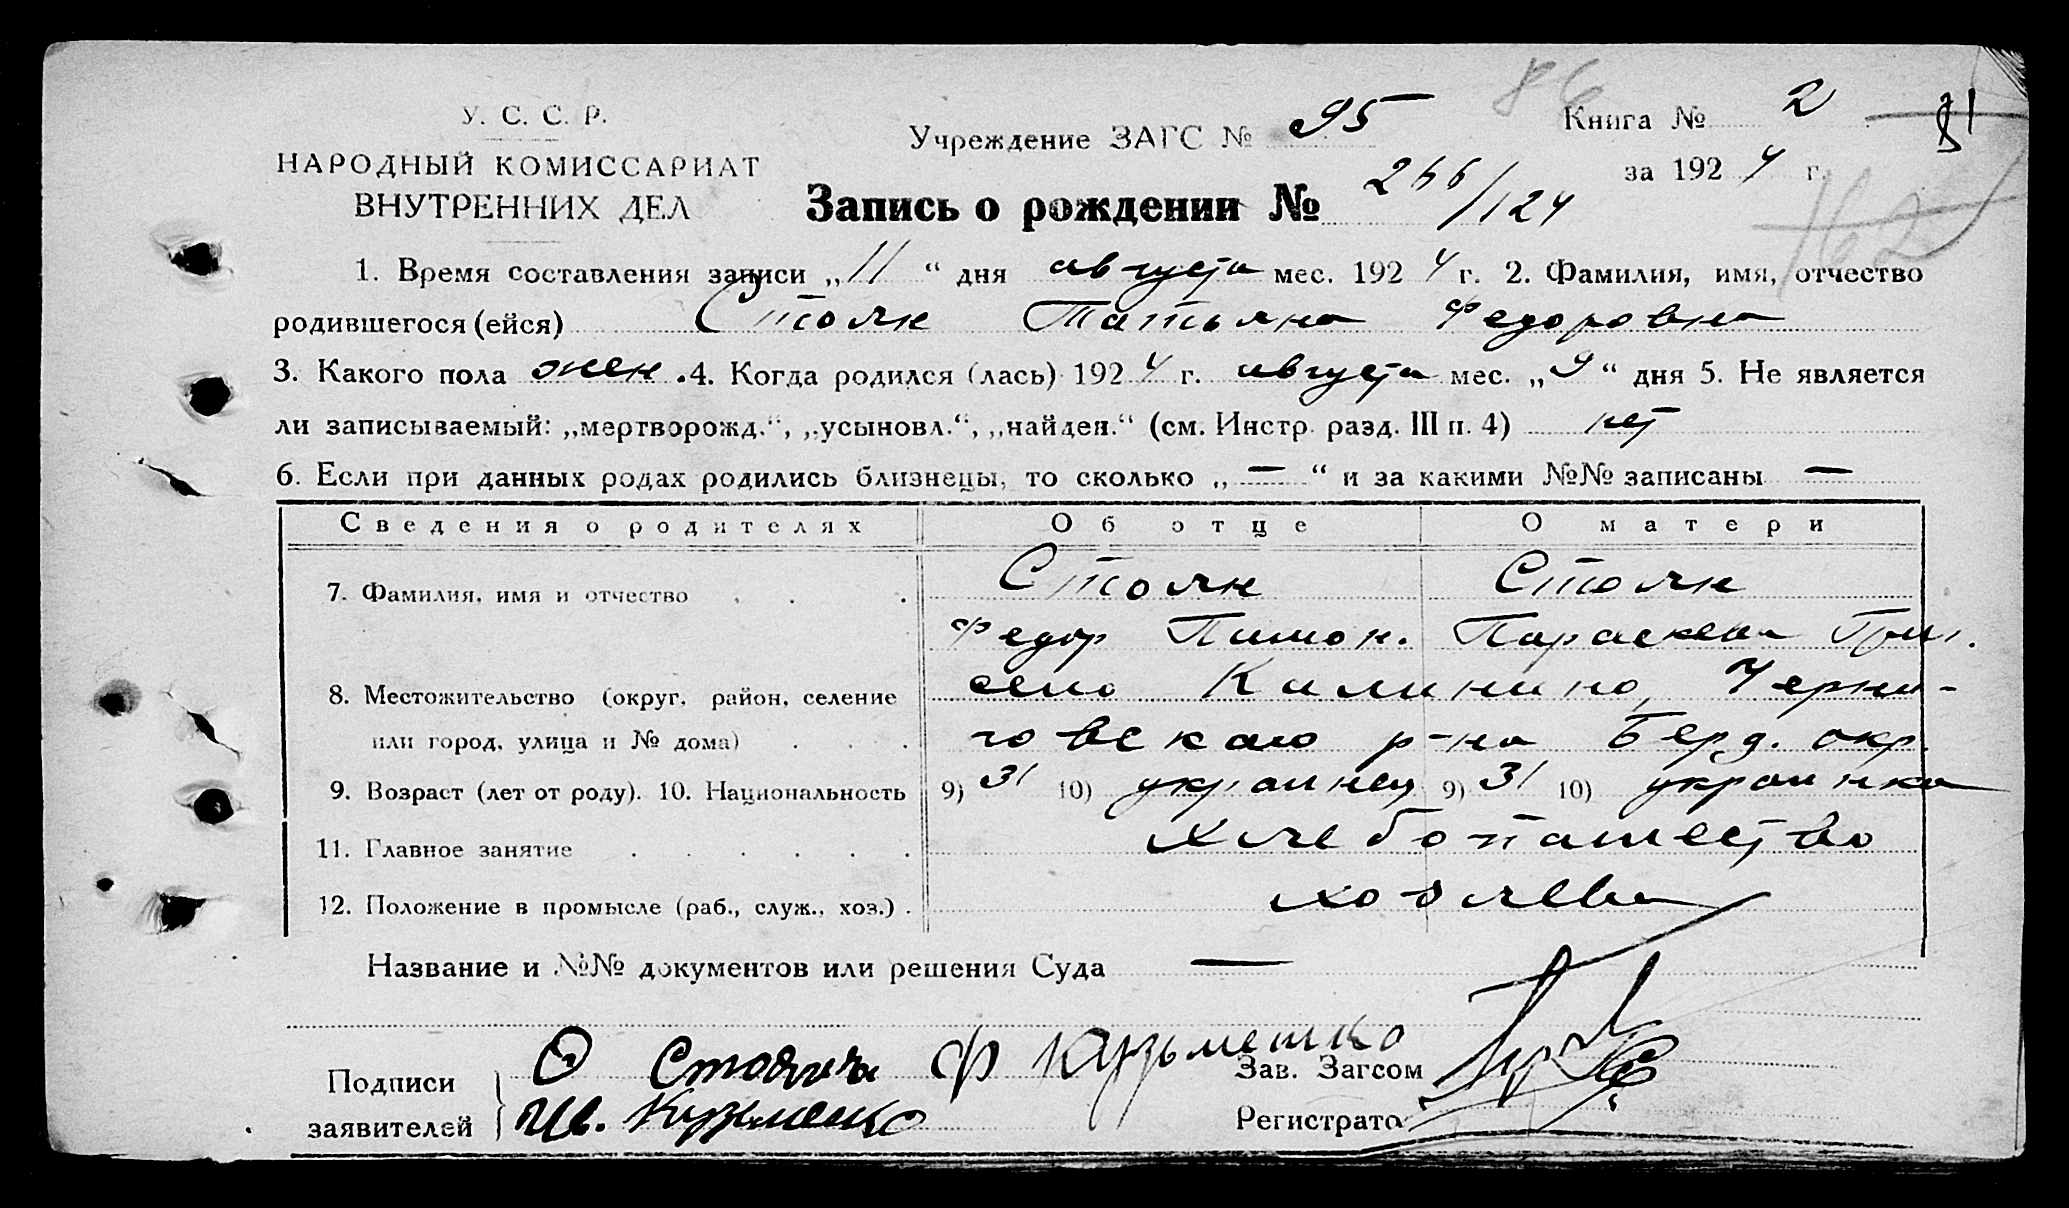 У. С. С. Р.
НАРОДНЫЙ КОМИССАРИАТ
ВНУТРЕННИХ ДЕЛ
86
Учреждение ЗАГС № 95
Книга № 2
81
за 1924 г.
162
Запись о рождении № 266/124
1. Время составления записи „11“ дня августа мес. 1924 г. 2. Фамилия, имя, отчество
родившегося (ейся) Столяк Татьяна Федоровна
3. Какого пола жен. 4. Когда родился (лась) 1924 г. августа мес. „9“ дня 5. Не является
ли записываемый: „мертворожд.“, „усыновл.“, „найден.“ (см. Инстр. разд. III п. 4) нет
6. Если при данных родах родились близнецы, то сколько „—“ и за какими №№ записаны —
Сведения о родителях Об отце О матери
7. Фамилия, имя и отчество Столяк Столяк
Федор Пимон. Параскева Григ.
8. Местожительство (округ, район, селение село Калинино, Черни-
или город, улица и № дома) говского р-на Берд. окр.
9. Возраст (лет от роду). 10. Национальность 9) 31 10) украинец 9) 31 10) украинка
11. Главное занятие хлебопашество
12. Положение в промысле (раб., служ., хоз.) хозяева
Название и №№ документов или решения Суда —
Подписи заявителей
Ф Кузьменко
Ив. Кузьменко
Зав. Загсом
Регистратор